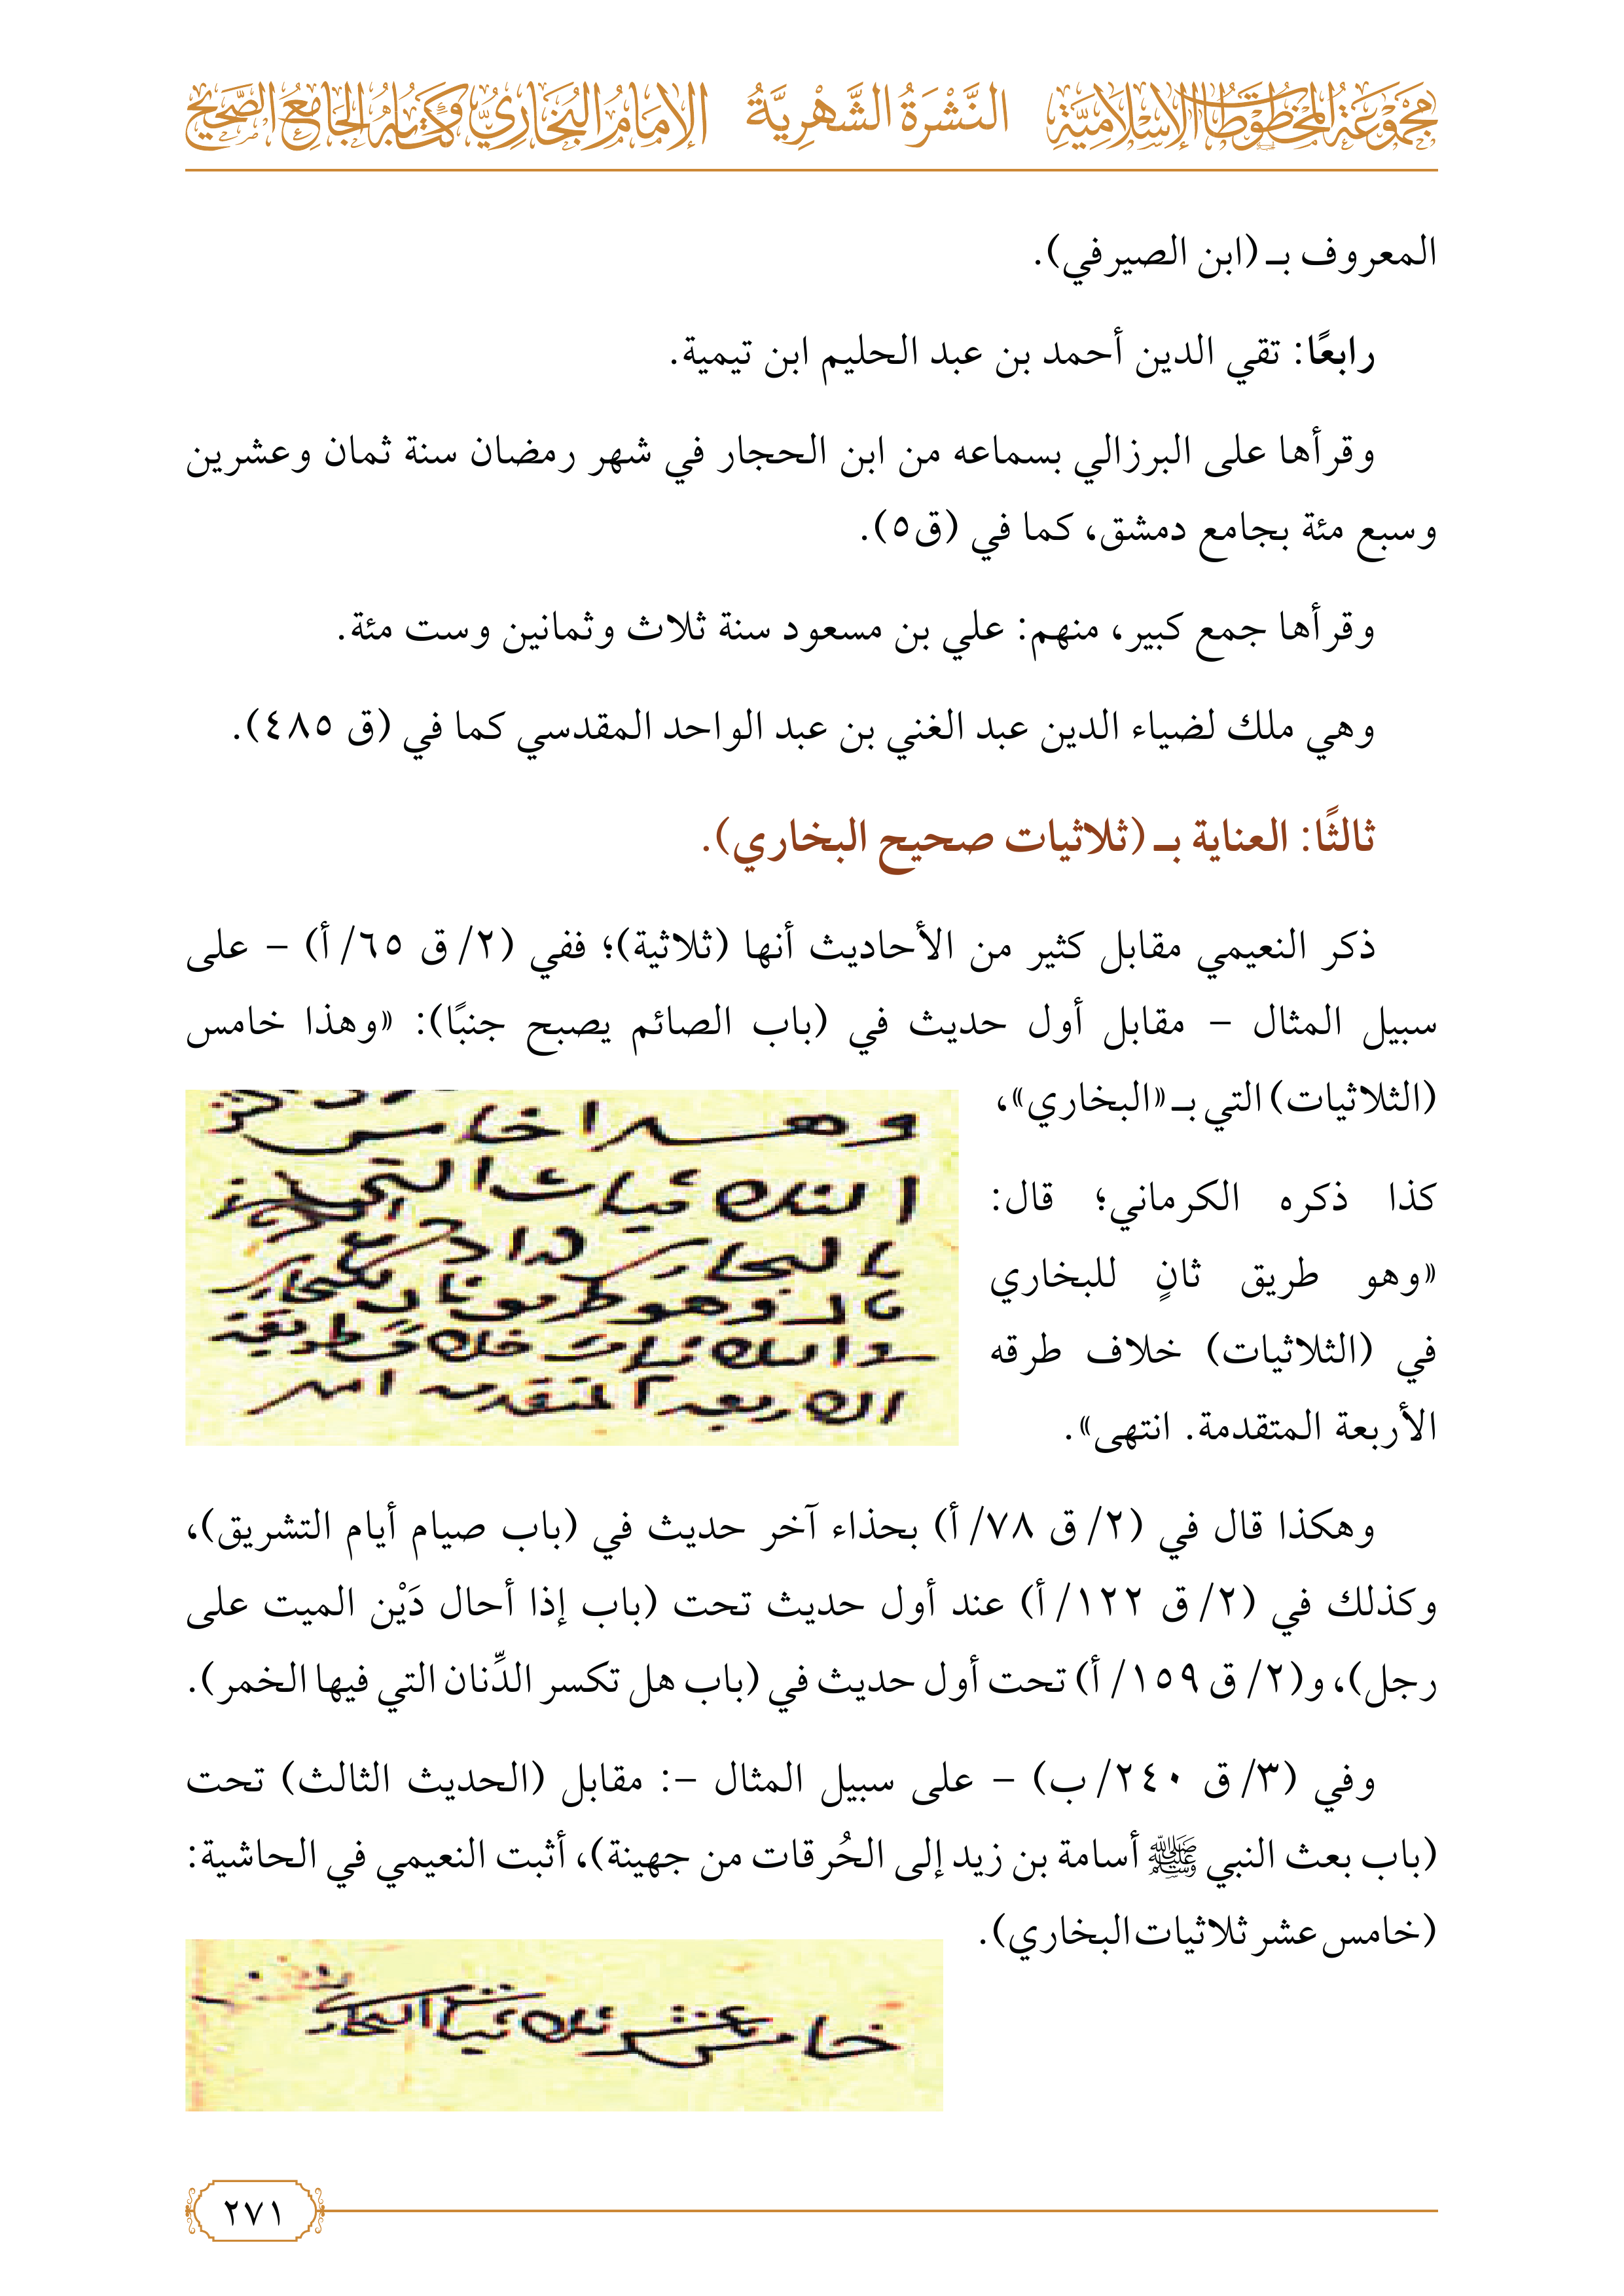 مَجْمُوعَةُ المَخْطُوطَاتِ الإِسْلَامِيَّةِ النَّشْرَةُ الشَّهْرِيَّةُ الإِمَامُ البُخَارِيُّ وَكِتَابُهُ الجَامِعُ الصَّحِيحُ
المعروف بـ (ابن الصيرفي).
رابعًا: تقي الدين أحمد بن عبد الحليم ابن تيمية.
وقرأها على البرزالي بسماعه من ابن الحجار في شهر رمضان سنة ثمان وعشرين
وسبع مئة بجامع دمشق، كما في (ق٥).
وقرأها جمع كبير، منهم: علي بن مسعود سنة ثلاث وثمانين وست مئة.
وهي ملك لضياء الدين عبد الغني بن عبد الواحد المقدسي كما في (ق ٤٨٥).
ثالثًا: العناية بـ (ثلاثيات صحيح البخاري).
ذكر النعيمي مقابل كثير من الأحاديث أنها (ثلاثية)؛ ففي (٢/ ق ٦٥/ أ) – على
سبيل المثال – مقابل أول حديث في (باب الصائم يصبح جنبًا): «وهذا خامس
(الثلاثيات) التي بـ «البخاري»،
كذا ذكره الكرماني؛ قال:
«وهو طريق ثانٍ للبخاري
في (الثلاثيات) خلاف طرقه
الأربعة المتقدمة. انتهى».
وهذا خامس
الثلاثيات التي
بالبخاري كذا ذكره
قال وهو طريق ثان للبخاري
في الثلاثيات خلاف طريقه
الاربعة المتقدمة انتهى
وهكذا قال في (٢/ ق ٧٨/ أ) بحذاء آخر حديث في (باب صيام أيام التشريق)،
وكذلك في (٢/ ق ١٢٢/ أ) عند أول حديث تحت (باب إذا أحال دَيْن الميت على
رجل)، و(٢/ ق ١٥٩/ أ) تحت أول حديث في (باب هل تكسر الدِّنان التي فيها الخمر).
وفي (٣/ ق ٢٤٠/ ب) – على سبيل المثال –: مقابل (الحديث الثالث) تحت
(باب بعث النبي ﷺ أسامة بن زيد إلى الحُرقات من جهينة)، أثبت النعيمي في الحاشية:
(خامس عشر ثلاثيات البخاري).
خامس عشر ثلاثيات البخاري
٢٧١